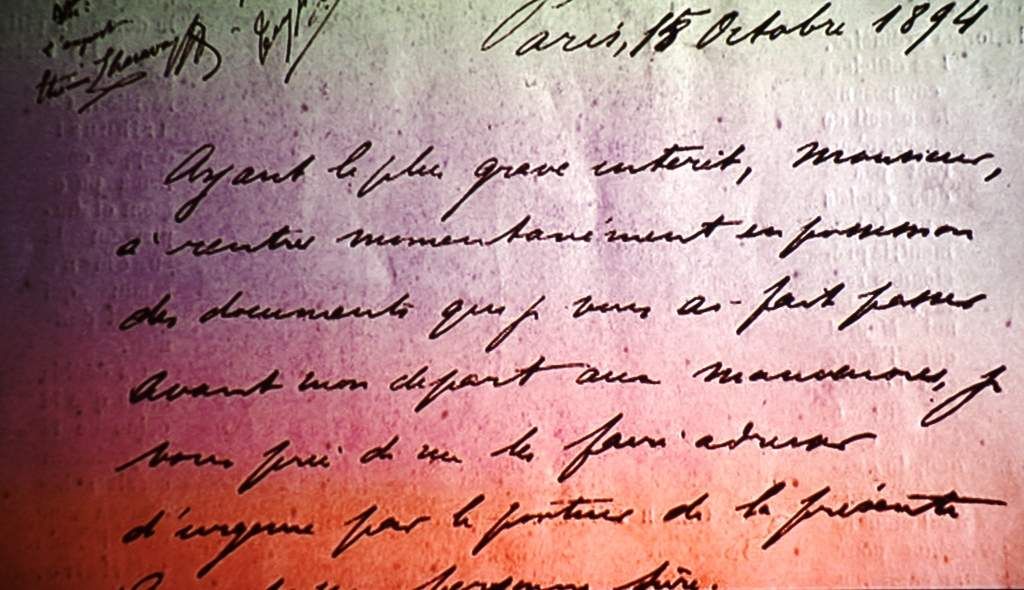 Paris, 15 Octobre 1894
Ayant le plus grave intérêt, Monsieur,
à rentrer momentanément en possession
des documents que je vous ai fait passer
avant mon départ aux manœuvres, je
vous prie de me les faire adresser
d'urgence par le porteur de la présente
personne sûre.